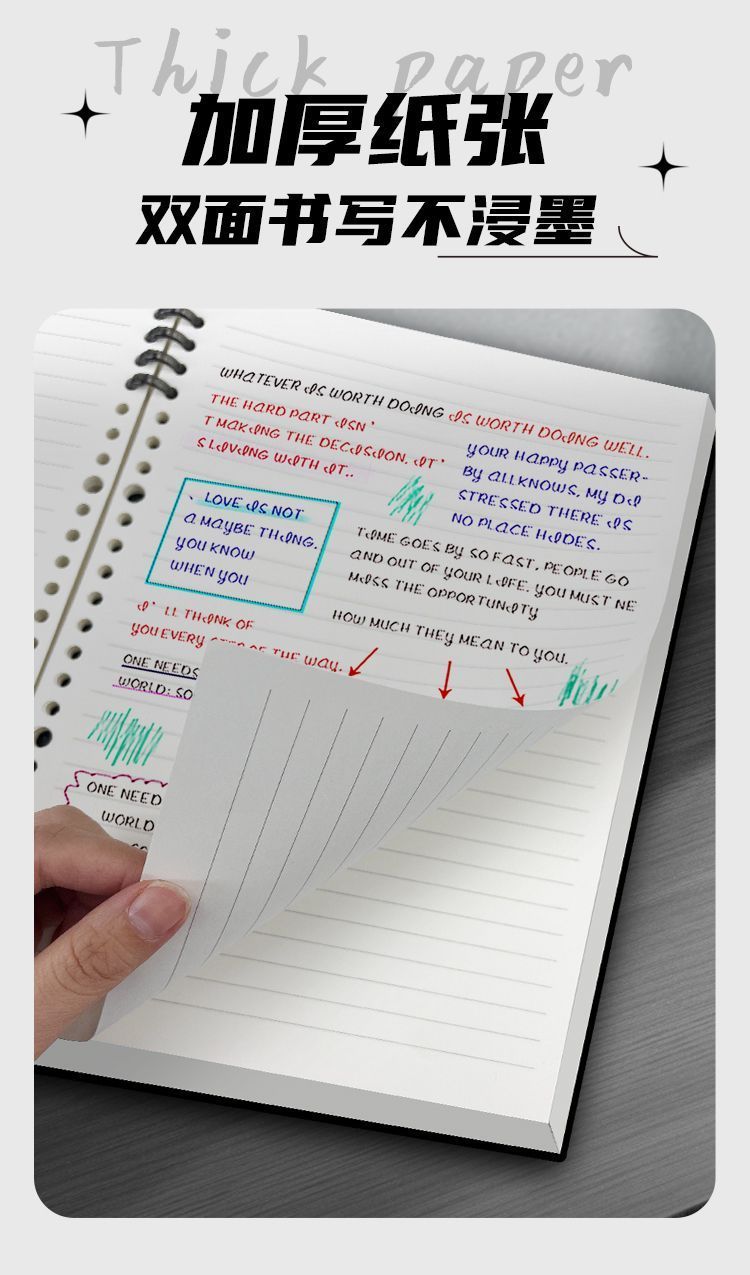 Thick paper
加厚纸张
双面书写不浸墨
WHATEVER IS WORTH DOING IS WORTH DOING WELL.
THE HARD PART ISN'
T MAKING THE DECISION. IT'
S LIVING WITH IT..
YOUR HAPPY PASSER-
BY ALLKNOWS, MY DI
STRESSED THERE IS
NO PLACE HIDES.
、LOVE IS NOT
A MAYBE THING.
YOU KNOW
WHEN YOU
TIME GOES BY SO FAST, PEOPLE GO
AND OUT OF YOUR LIFE. YOU MUST NE
MISS THE OPPORTUNITY
HOW MUCH THEY MEAN TO YOU.
I' LL THINK OF
YOU EVERY STEP OF THE WAY.
ONE NEEDS
WORLD: SO
ONE NEED
WORLD